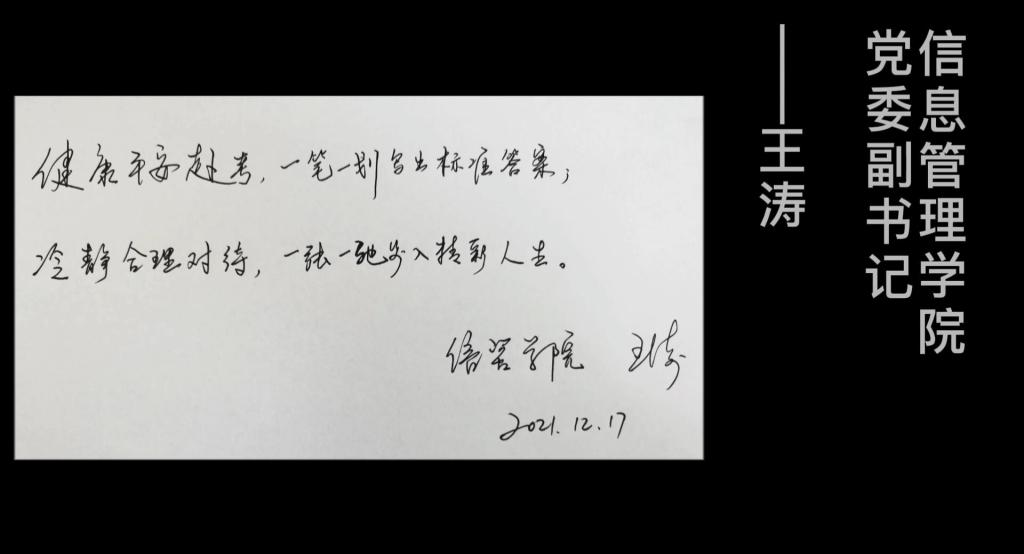 健康平安赴考，一笔一划写出标准答案；
冷静合理对待，一张一弛步入精彩人生。
信管学院 王涛
2021.12.17
信息管理学院
党委副书记
——王涛